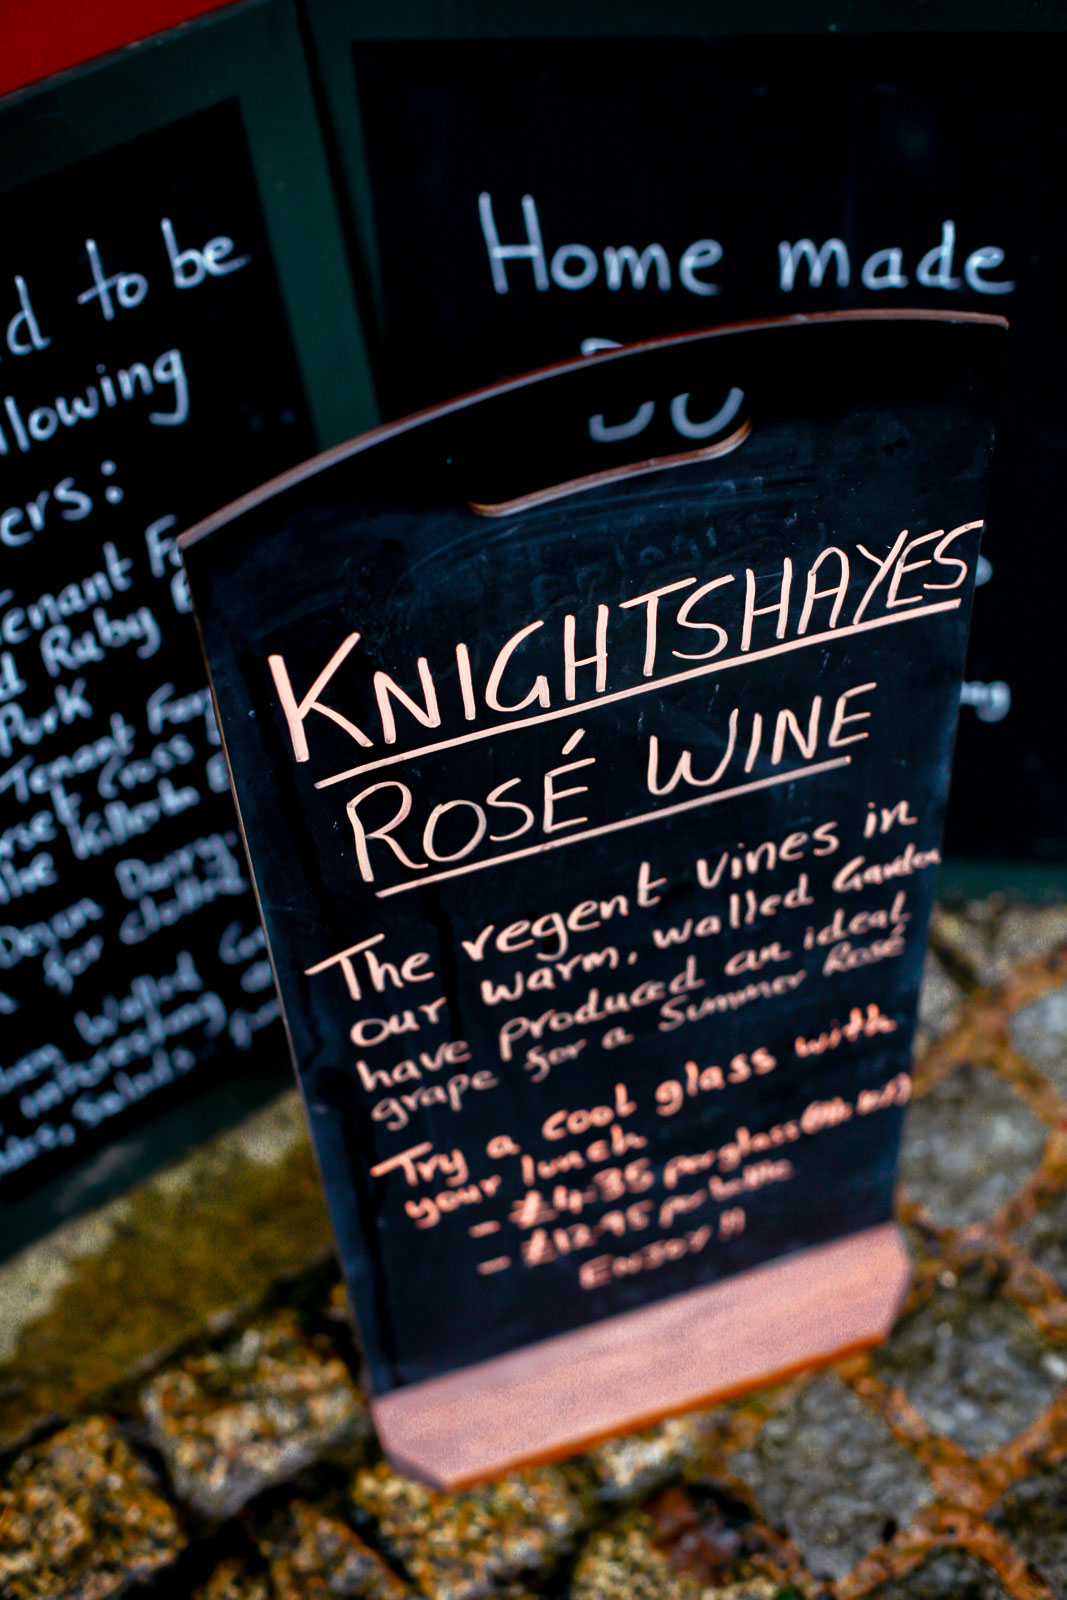 to be
llowing
ers:
Tenant
Ruby
Pork
Tenant
Cross
The Killerton
Devon Dairy
for clotted
Walled
Salads
Home made
KNIGHTSHAYES
ROSÉ WINE
The regent vines in
our warm, walled Garden
have produced an ideal
grape for a Summer Rosé
Try a cool glass with
your lunch
- £4.35 per glass
- £12.95 per bottle
ENJOY!!